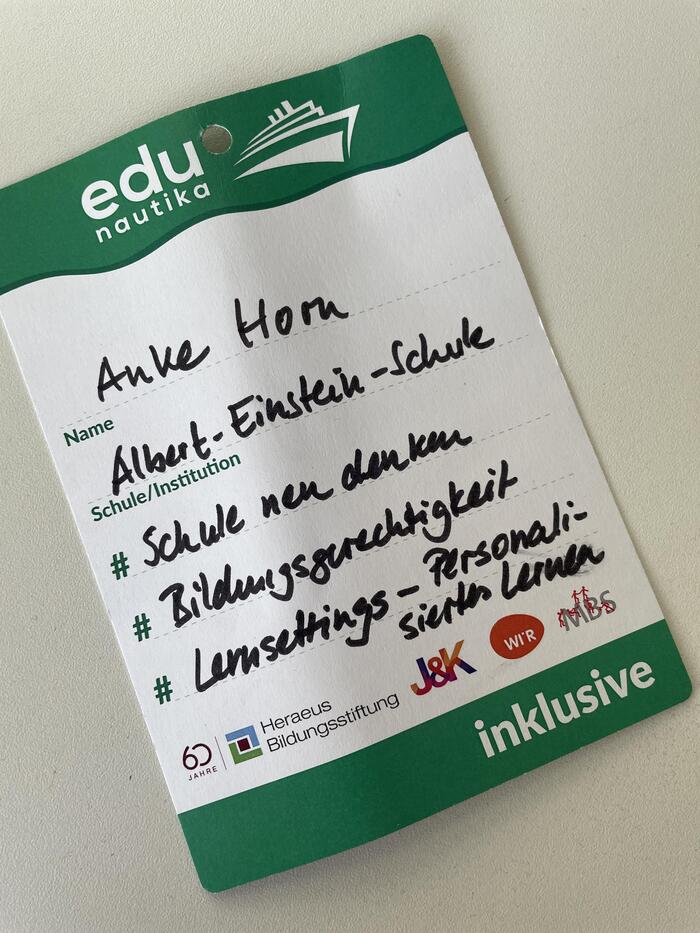 edu
nautika
Anke Horn
Name
Albert-Einstein-Schule
Schule/Institution
# Schule neu denken
# Bildungsgerechtigkeit
# Lernsettings - Personali-
siertes Lernen
60
JAHRE
Heraeus
Bildungsstiftung
J&K
WIR
MBS
inklusive